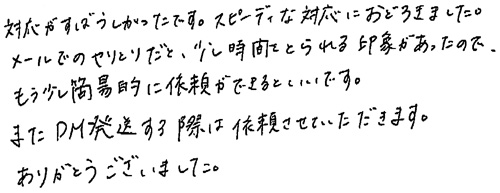 対応がすばらしかったです。スピーディな対応におどろきました。
メールでのやりとりだと、少し時間をとられる印象があったので、
もう少し簡易的に依頼ができるといいです。
またDM発送する際は依頼させていただきます。
ありがとうございました。